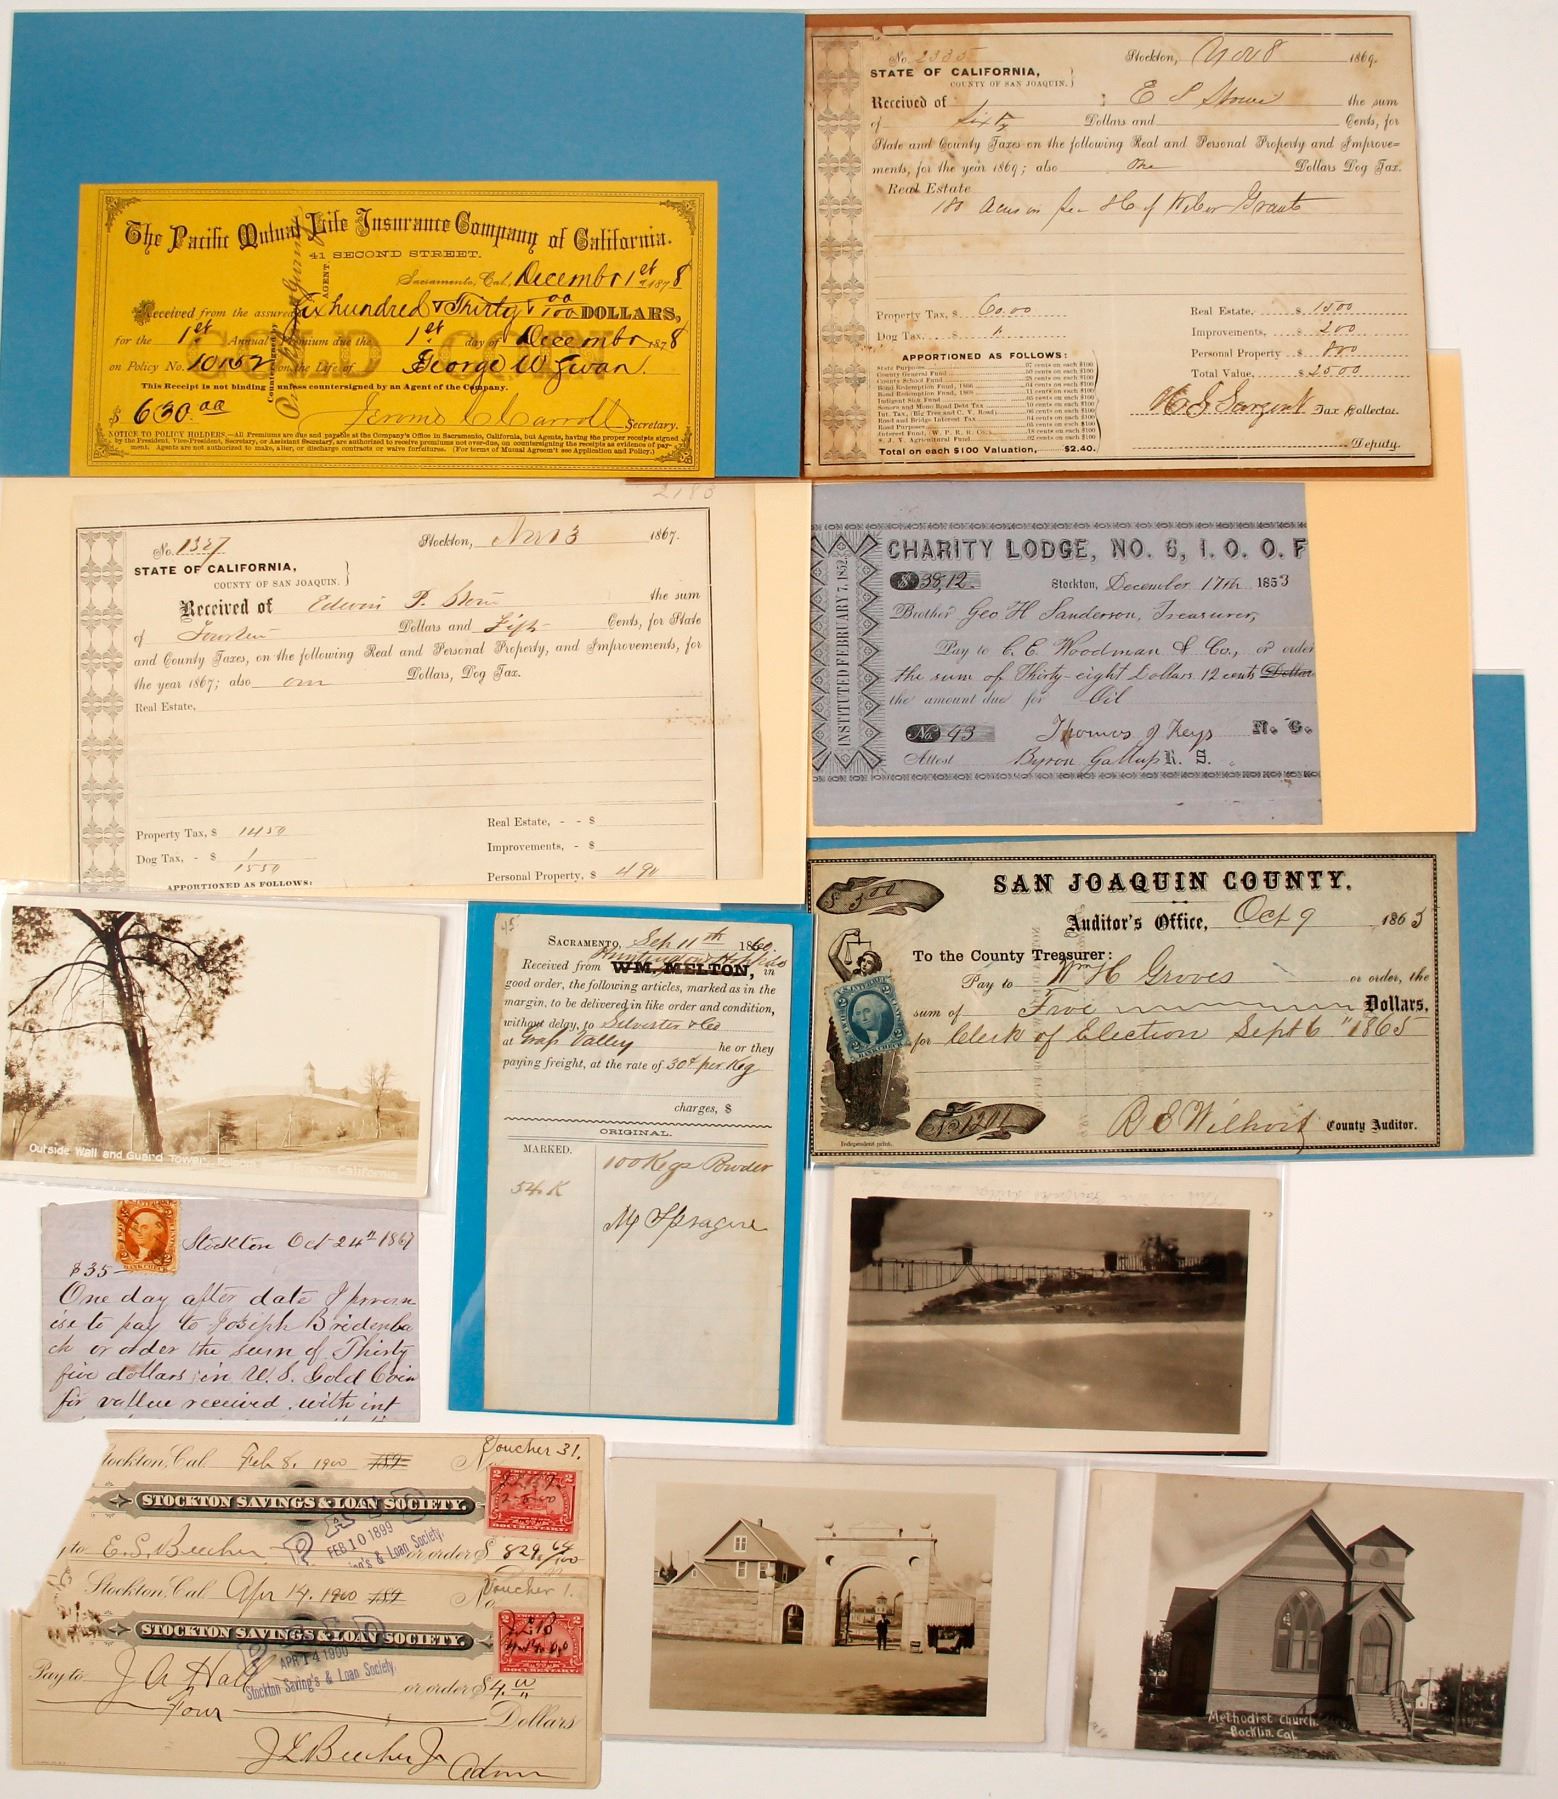 The Pacific Mutual Life Insurance Company of California.
41 SECOND STREET.
Sacramento, Cal., December 1st 1878
Received from the assured Six hundred & Thirty & 00/100 DOLLARS,
for the 1st Annual Premium due the 1st day of December 1878
on Policy No. 10052 on the Life of George W Zwan.
This Receipt is not binding unless countersigned by an Agent of the Company.
$ 630.00 Jerome C Carroll Secretary.
NOTICE TO POLICY HOLDERS.—All Premiums are due and payable at the Company's Office in Sacramento, California, but Agents, having the proper receipts signed
by the President, Vice-President, Secretary, or Assistant Secretary, are authorized to receive premiums not over-due, on countersigning the receipts as evidence of pay-
ment. Agents are not authorized to make, alter, or discharge contracts or waive forfeitures. (For terms of Mutual Agreem't see Application and Policy.)
GOLD COIN
Countersigned by
AGENT.
No. 2335
Stockton, Nov 8 1869.
STATE OF CALIFORNIA,
COUNTY OF SAN JOAQUIN.
Received of E S Stowe the sum
of Sixty Dollars and Cents, for
State and County Taxes on the following Real and Personal Property and Improve=
ments, for the year 1869; also One Dollars Dog Tax.
Real Estate
180 Acres in Sec of Weber Grant
Property Tax, $ 60.00
Dog Tax, $ 1.
Real Estate, $ 1500
Improvements, $ 200
Personal Property $ 800
Total Value, $ 2500
APPORTIONED AS FOLLOWS:
State Purposes 97 cents on each $100
County General Fund 50 cents on each $100
County School Fund 28 cents on each $100
Bond Redemption Fund, 1866 04 cents on each $100
Bond Redemption Fund, 1868 11 cents on each $100
Indigent Sick Fund
Sonora and Mono Road Debt Tax
Int. Tax, (Big Tree and C. V. Road)
Road and Bridge Interest Tax
Road Purposes
Interest Fund, (W. P. R. R. Co.)
S. J. V. Agricultural Fund 02 cents on each $100
Total on each $100 Valuation, $2.40.
H S Sargent Tax Collector.
Deputy.
2183
No. 1327
Stockton, Nov 13 1867.
STATE OF CALIFORNIA,
COUNTY OF SAN JOAQUIN.
Received of Edwin P. Stow the sum
of Fourteen Dollars and Fifty Cents, for State
and County Taxes, on the following Real and Personal Property, and Improvements, for
the year 1867; also one Dollars, Dog Tax.
Real Estate,
Property Tax, $ 1450
Dog Tax, - $ 1
1550
APPORTIONED AS FOLLOWS:
Real Estate, - - $
Improvements, - $
Personal Property, $ 490
INSTITUTED FEBRUARY 7, 1852.
CHARITY LODGE, NO. 6, I. O. O. F
$ 38,12. Stockton, December 17th 1853
Brother Geo H Sanderson, Treasurer,
Pay to C. E. Woodman & Co., or order
the sum of Thirty-eight Dollars 12 cents Dollars
the amount due for Oil
No. 43 Thomas J Keys N. G.
Attest Byron Gallup R. S.
SAN JOAQUIN COUNTY.
$ 5.00
Auditor's Office, Oct 9 1865
To the County Treasurer:
Pay to Wm H Groves or order, the
sum of Five Dollars,
for Clerk of Election Sept 6" 1865
U.S. INTER. REV.
BANK CHECK
No. 1201
R E Wilhoit County Auditor.
Independent print.
Outside Wall and Guard Tower, Folsom Prison California
45
SACRAMENTO, Sep 11th 1860.
Huntington Hopkins
Received from WM. MELTON, in
good order, the following articles, marked as in the
margin, to be delivered in like order and condition,
without delay, to Silvester & Co
at Grass Valley he or they
paying freight, at the rate of 30¢ per Keg
charges, $
ORIGINAL.
MARKED.
100 Kegs Powder
54 K
M Sprague
BANK CHECK
Stockton Oct 24th 1867
$35—
One day after date I prom
ise to pay to Joseph Bridenba
ch or order the sum of Thirty
five dollars in U.S. Gold Coin
for vallue received, with int
Voucher 31.
Stockton, Cal. Feb 8, 1900 189 No.
STOCKTON SAVINGS & LOAN SOCIETY.
PAID
FEB 10 1899
Saving's & Loan Society.
Pay to E. S. Beecher or order $ 829 64/100
DOCUMENTARY.
Stockton, Cal. Apr 14, 1900 189 No. Voucher 1.
STOCKTON SAVINGS & LOAN SOCIETY.
PAID
APR 14 1900
Stockton Saving's & Loan Society.
Pay to J A Hall or order $ 4.00
Four Dollars
DOCUMENTARY.
J L Beecher Jr
Admr
Methodist Church.
Rocklin, Cal.